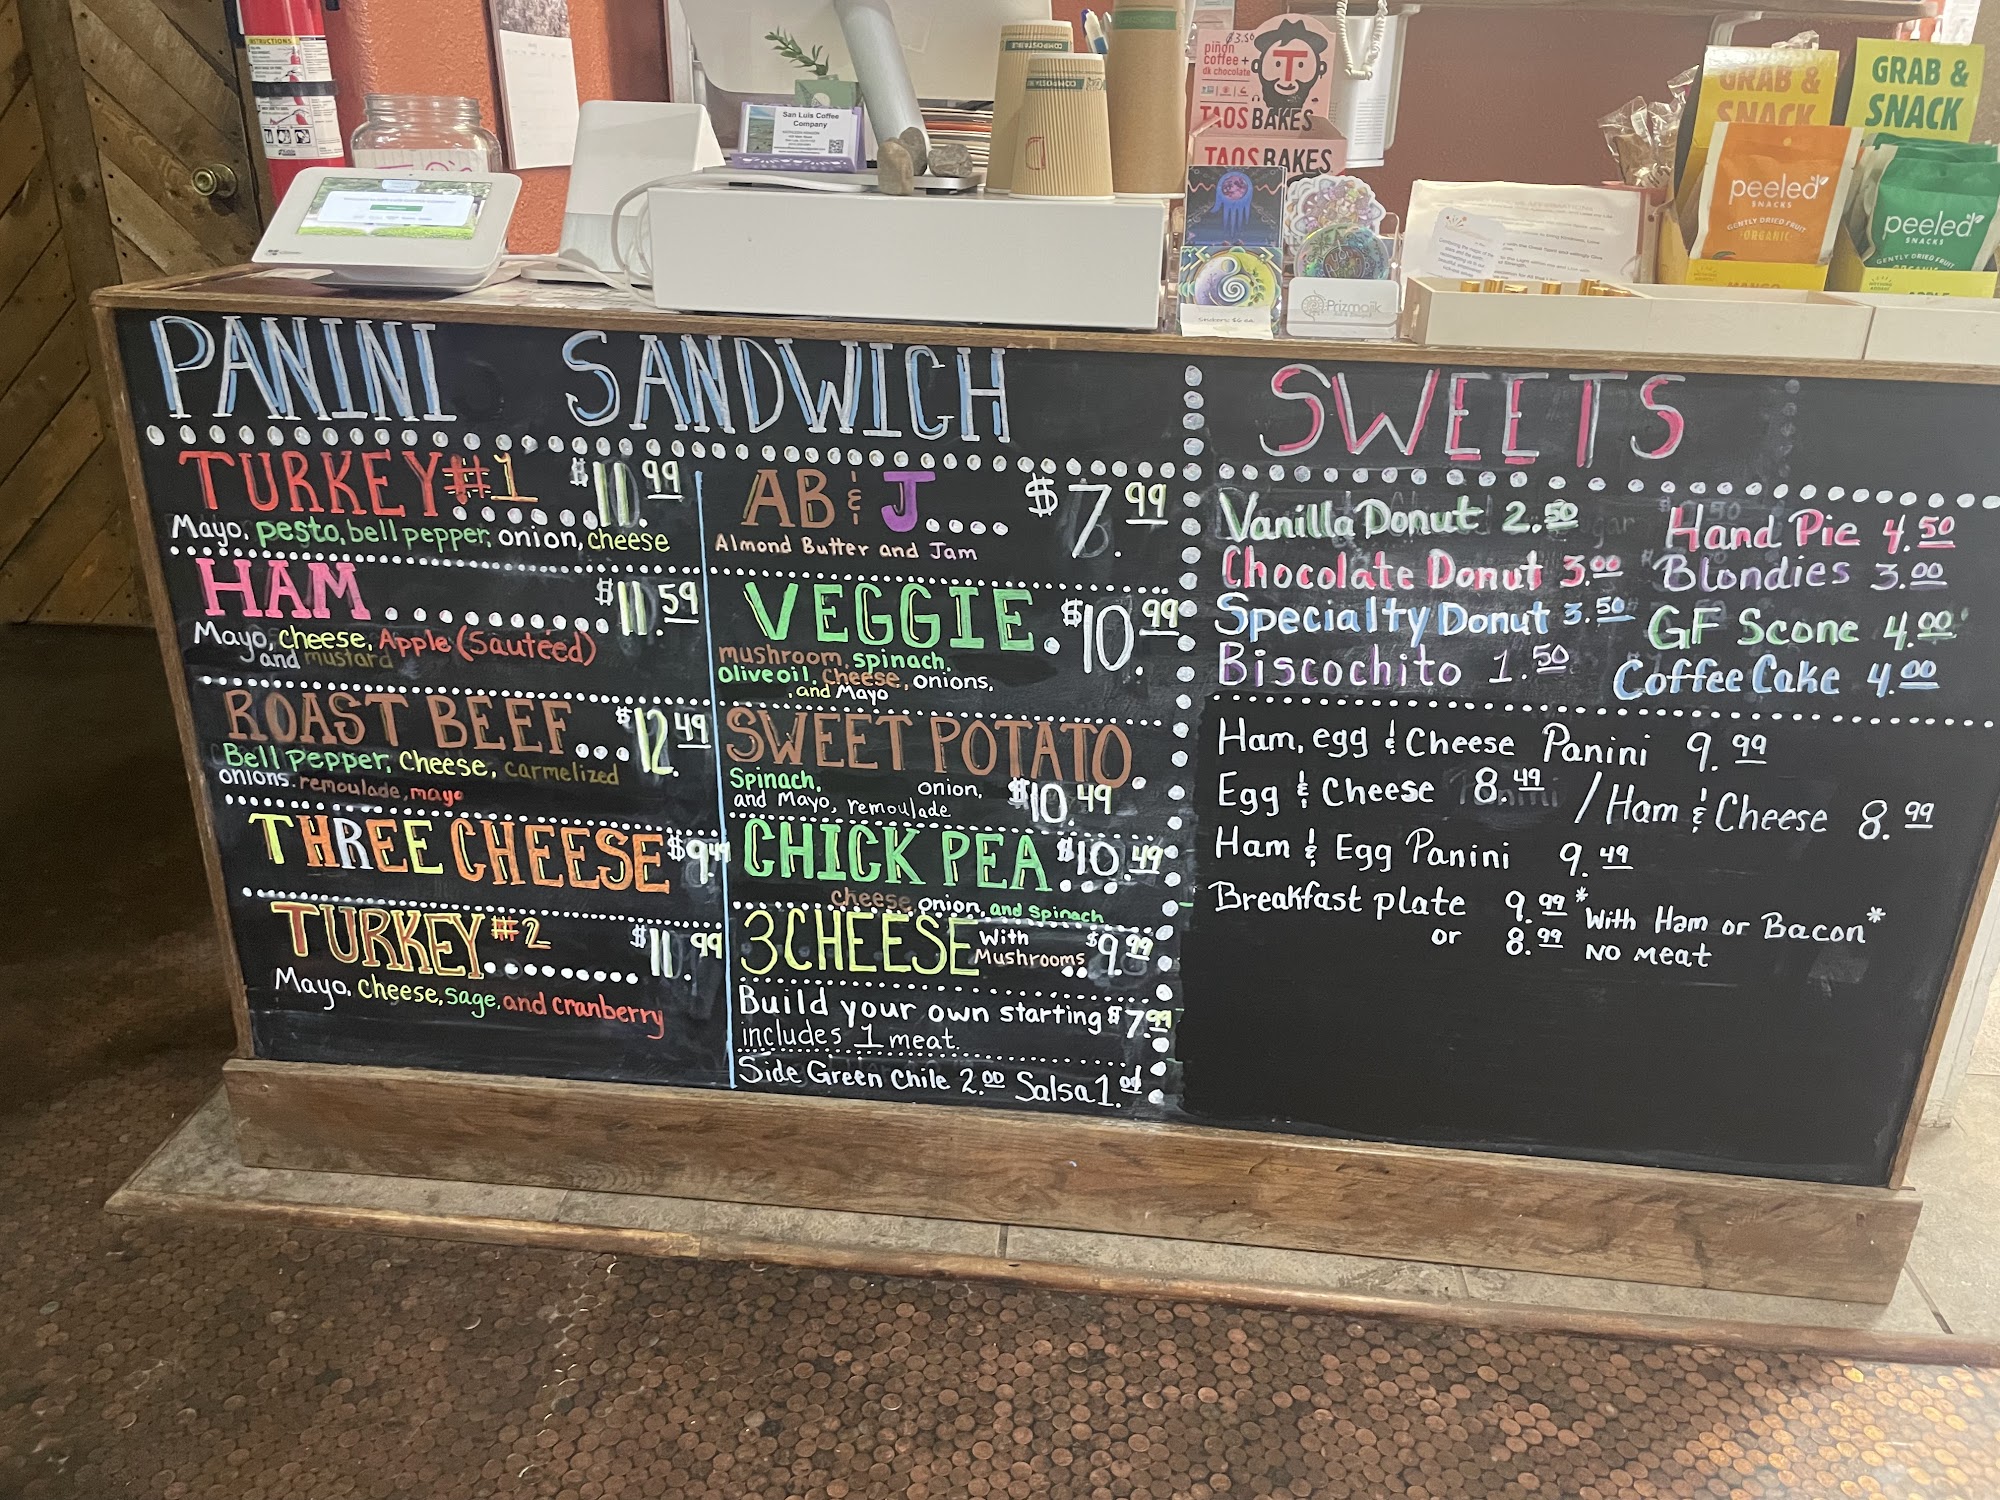 INSTRUCTIONS
San Luis Coffee
Company
COMPOSTABLE
$3.50
piñon
coffee +
dk chocolate
T
TAOS BAKES
TAOS BAKES
GRAB &
SNACK
GRAB &
SNACK
peeled
SNACKS
GENTLY DRIED FRUIT
ORGANIC
MANGO
peeled
SNACKS
GENTLY DRIED FRUIT
Prizmajik
PANINI SANDWICH
TURKEY #1 $11.99
Mayo, pesto, bell pepper, onion, cheese
HAM $11.59
Mayo, cheese, Apple (Sautéed)
and mustard
ROAST BEEF $12.49
Bell Pepper, Cheese, carmelized
onions, remoulade, mayo
THREE CHEESE $9.49
TURKEY #2 $11.99
Mayo, cheese, sage, and cranberry
AB & J $7.99
Almond Butter and Jam
VEGGIE $10.99
mushroom, spinach,
Olive oil, Cheese, onions,
and Mayo
SWEET POTATO
Spinach, onion,
and Mayo, remoulade $10.49
CHICK PEA $10.49
cheese, onion, and spinach
3 CHEESE With Mushrooms $9.99
Build your own starting $7.99
includes 1 meat.
Side Green Chile 2.00 Salsa 1.00
SWEETS
Vanilla Donut 2.50
Chocolate Donut 3.00
Specialty Donut 3.50
Biscochito 1.50
Hand Pie 4.50
Blondies 3.00
GF Scone 4.00
Coffee Cake 4.00
Ham, egg & Cheese Panini 9.99
Egg & Cheese 8.49 / Ham & Cheese 8.99
Ham & Egg Panini 9.49
Breakfast plate 9.99 *With Ham or Bacon*
or 8.99 NO Meat